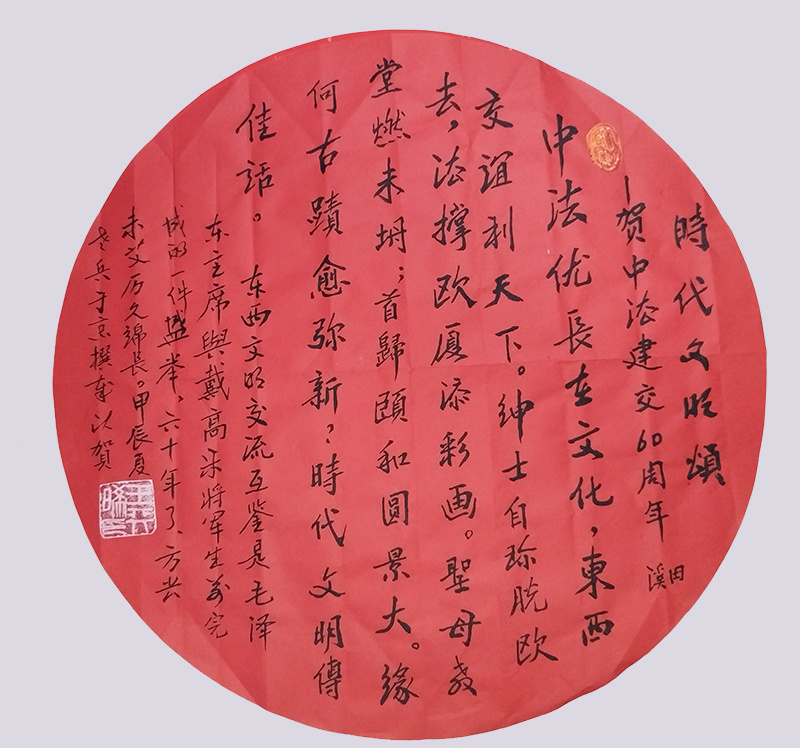 時代文明頌
—贺中法建交60周年
田溪
中法优長在文化，東西
交誼利天下。绅士自珍脱欧
去，法撑欧厦添彩画。聖母教
堂燃未坍；首歸頤和圆景大。缘
何古蹟愈弥新？時代文明傳
佳話。
东西文明交流互鉴是毛泽
东主席與戴高乐将军生前完
成的一件盛举，六十年了、方兴
未艾历久綿長。甲辰夏
老兵于京撰书以贺